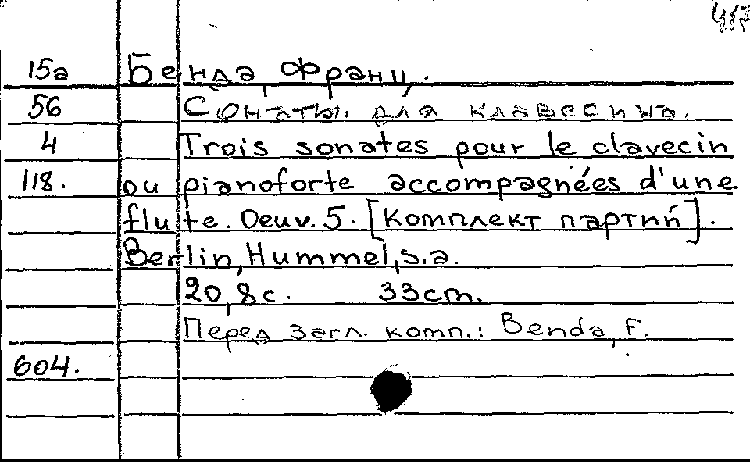 417
15а Бенда, Франц.
56 Сонаты для клавесина.
4 Trois sonates pour le clavecin
118. ou pianoforte accompagnées d'une
flute. Oeuv. 5. [Комплект партий].
Berlin, Hummel, s.a.
20,8с. 33cm.
Перед загл. комп.: Benda, F.
604.